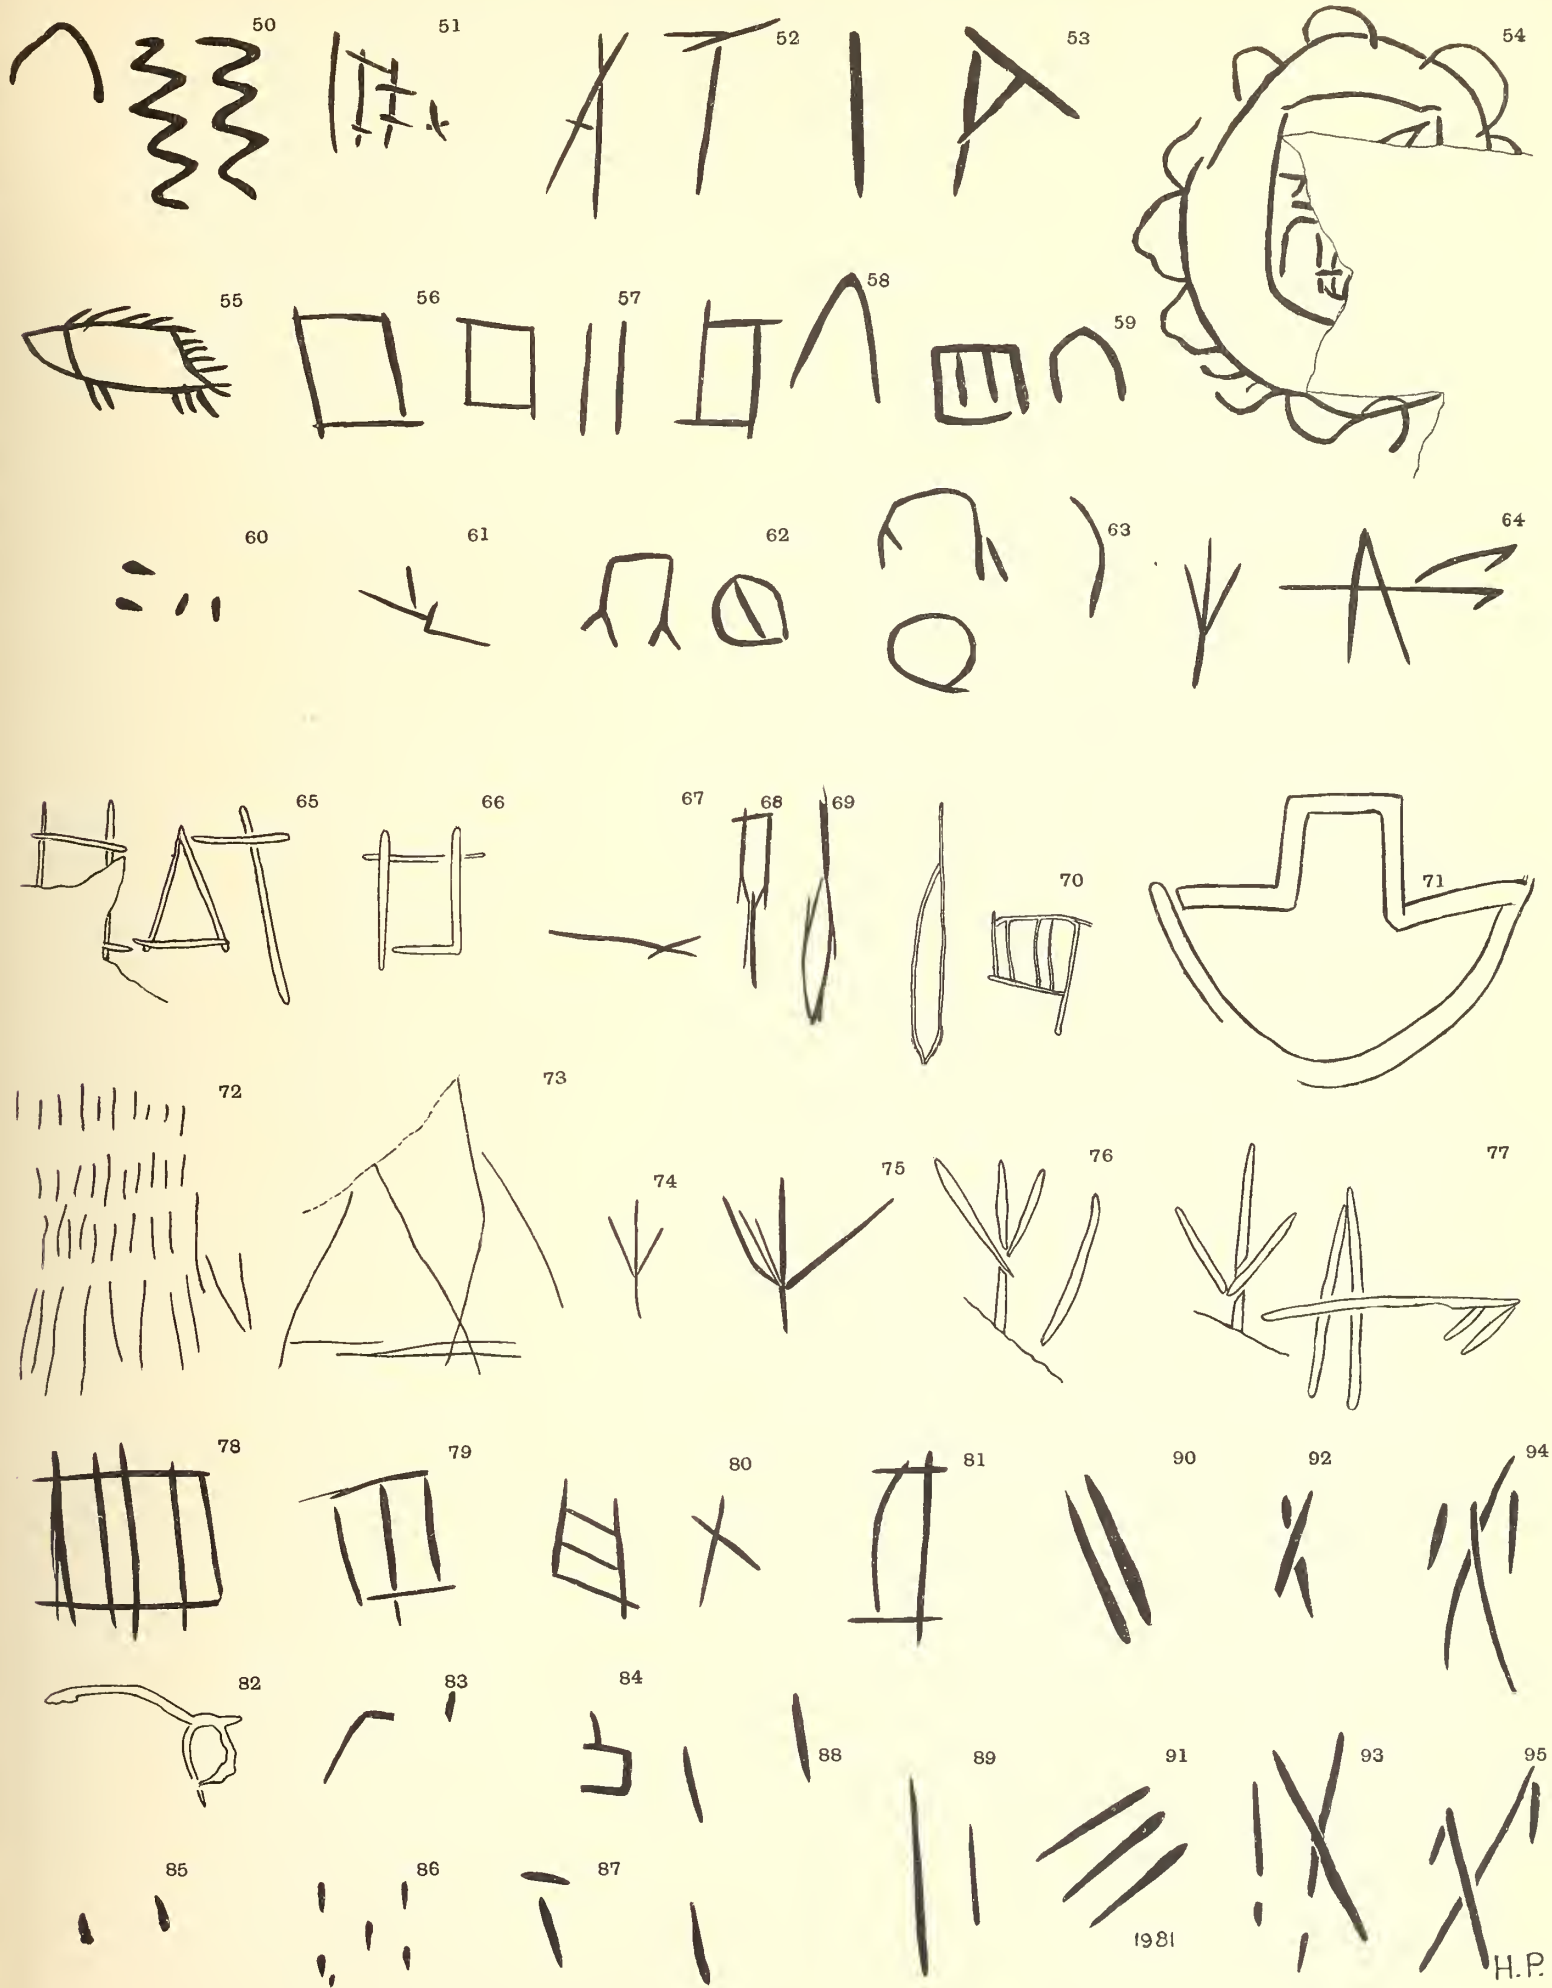 50 51 52 53 54
55 56 57 58 59
60 61 62 63 64
65 66 67 68 69 70 71
72 73 74 75 76 77
78 79 80 81 90 92 94
82 83 84 88 89 91 93 95
85 86 87
1981
H.P.